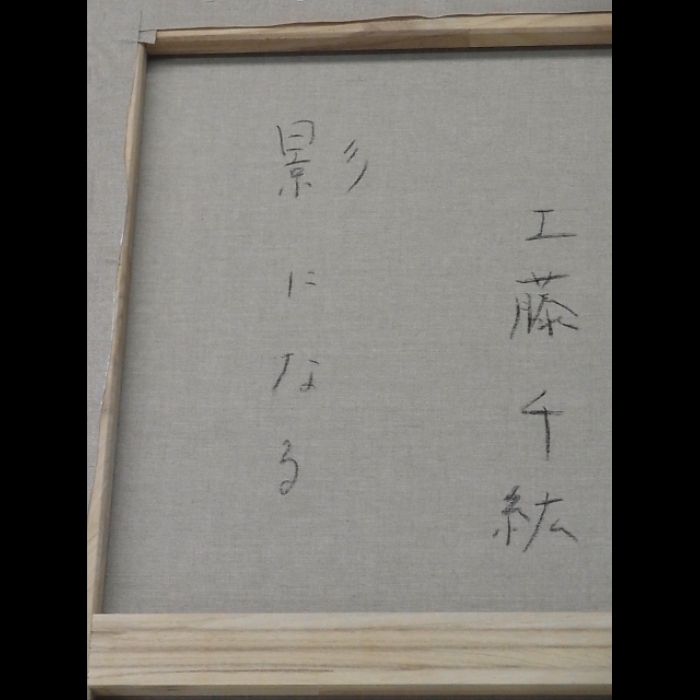 工藤千紘
影になる